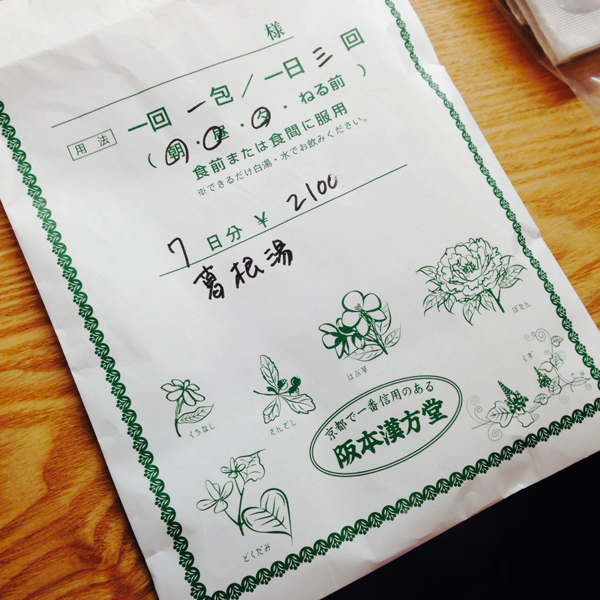 様
用法 一回 一包/一日 三 回
(朝・昼・夕・ねる前)
食前または食間に服用
※できるだけ白湯・水でお飲みください。
7 日分 ¥ 2100
葛根湯
ぼたん
はぶ草
くず
くちなし
さんざし
京都で一番信用のある
阪本漢方堂
どくだみ